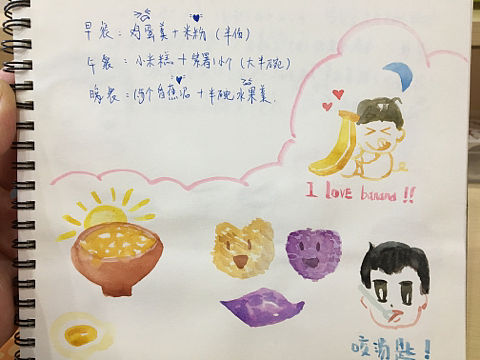 早餐：鸡蛋羹＋米粉（半份）
午餐：小米糕＋紫薯1小个（大半碗）
晚餐：1/2个香蕉泥＋半碗水果羹.
I LOVE banana !!
咬汤匙！